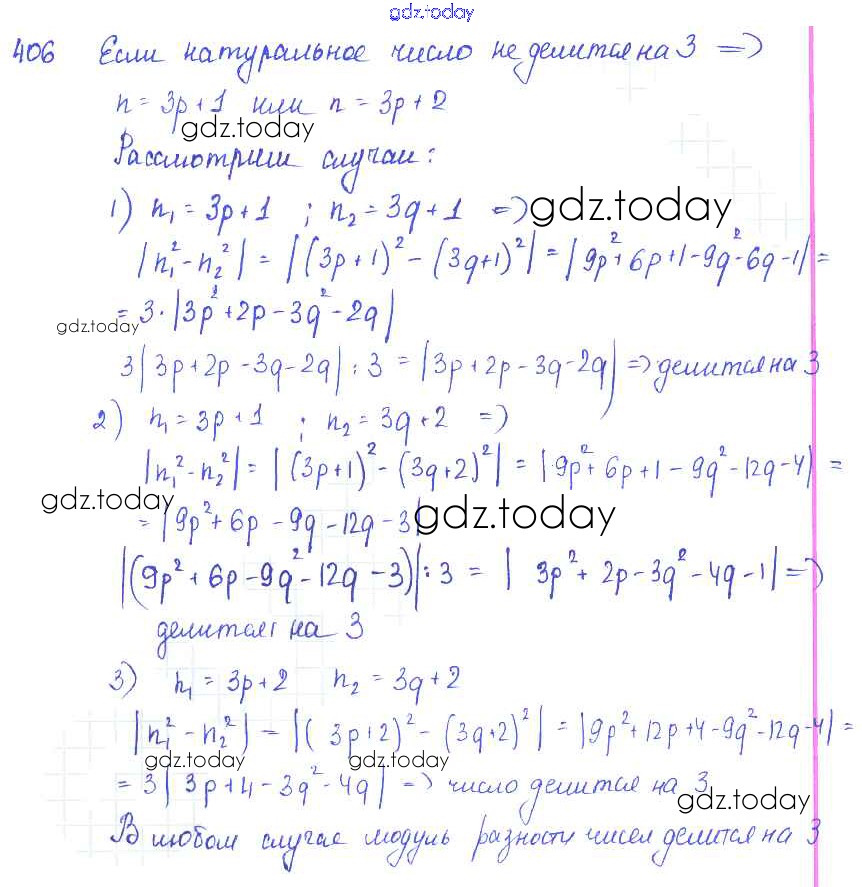 gdz.today
406 Если натуральное число не делится на 3 =>
n = 3p + 1 или n = 3p + 2
gdz.today
Рассмотрим случаи:
1) n₁ = 3p + 1 ; n₂ = 3q + 1 => gdz.today
|n₁² - n₂²| = |(3p + 1)² - (3q + 1)²| = |9p² + 6p + 1 - 9q² - 6q - 1| =
= 3 · |3p² + 2p - 3q² - 2q|
gdz.today
3|3p + 2p - 3q - 2q| : 3 = |3p + 2p - 3q - 2q| => делится на 3
2) n₁ = 3p + 1 ; n₂ = 3q + 2 =>
|n₁² - n₂²| = |(3p + 1)² - (3q + 2)²| = |9p² + 6p + 1 - 9q² - 12q - 4| =
gdz.today
= |9p² + 6p - 9q - 12q - 3| gdz.today
|(9p² + 6p - 9q² - 12q - 3)| : 3 = |3p² + 2p - 3q² - 4q - 1| =>
делится на 3
3) n₁ = 3p + 2 n₂ = 3q + 2
|n₁² - n₂²| = |(3p + 2)² - (3q + 2)²| = |9p² + 12p + 4 - 9q² - 12q - 4| =
gdz.today gdz.today
= 3|3p + 4 - 3q² - 4q| => число делится на 3
gdz.today
В любом случае модуль разности чисел делится на 3